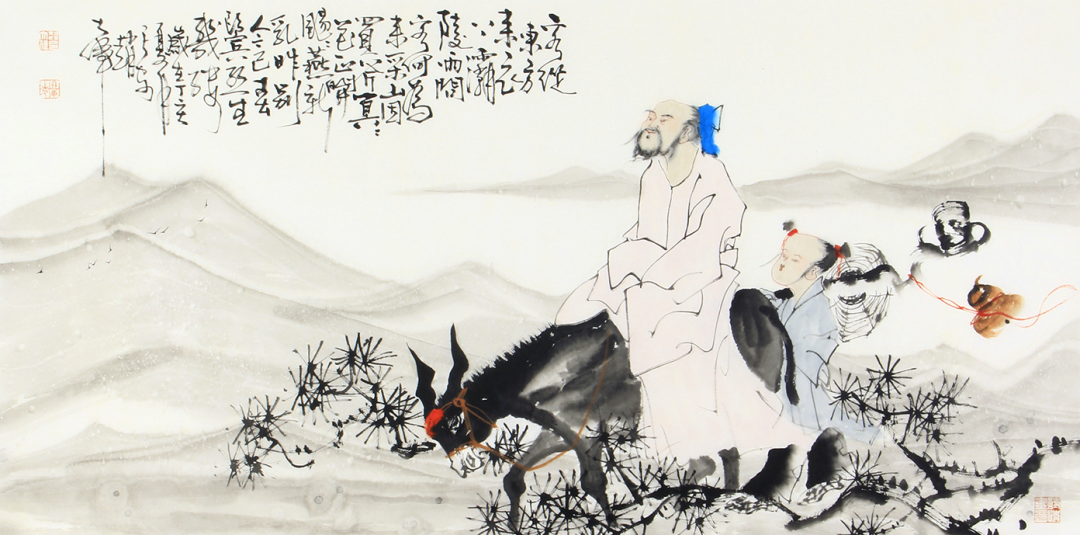 客從
東方
来衣
上灞
陵雨問
客何為
来采山因
買斧冥々
花正開
颺々燕新
乳昨別
今已春
鬢絲生
幾縷
歲在丁亥